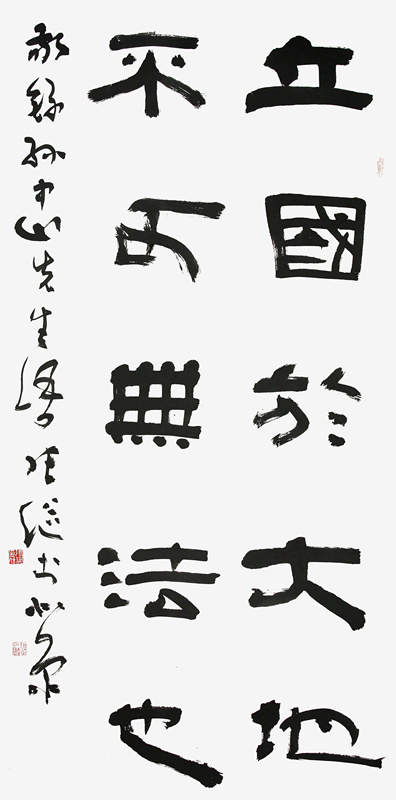 立國於大地
不可無法也
敬錄孫中山先生語張繼書北京